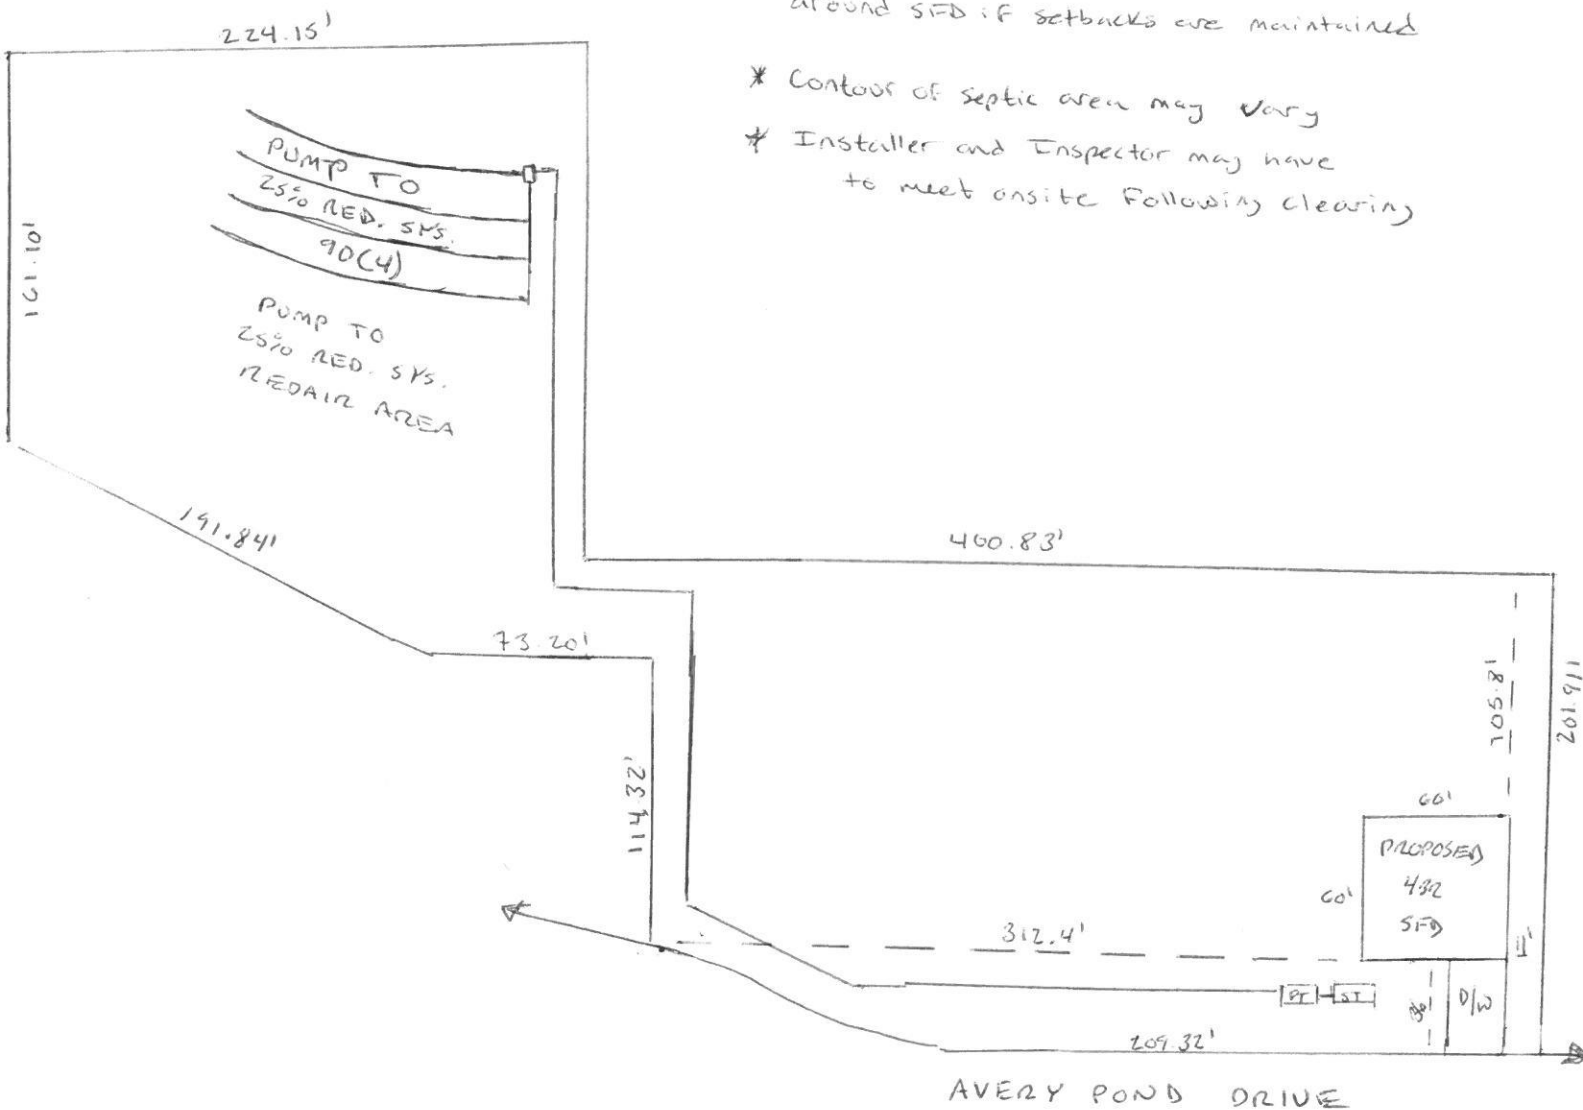 around SFD if setbacks are maintained
* Contour of septic area may vary
* Installer and Inspector may have
to meet onsite Following clearing
224.15'
161.10'
PUMP TO
25% RED. SYS.
90(4)
PUMP TO
25% RED. SYS.
REPAIR AREA
191.84'
73.20'
460.83'
114.32'
105.8'
201.91'
60'
60'
PROPOSED
4BR
SFD
11'
312.4'
PT
ST
36'
D/W
209.32'
AVERY POND DRIVE